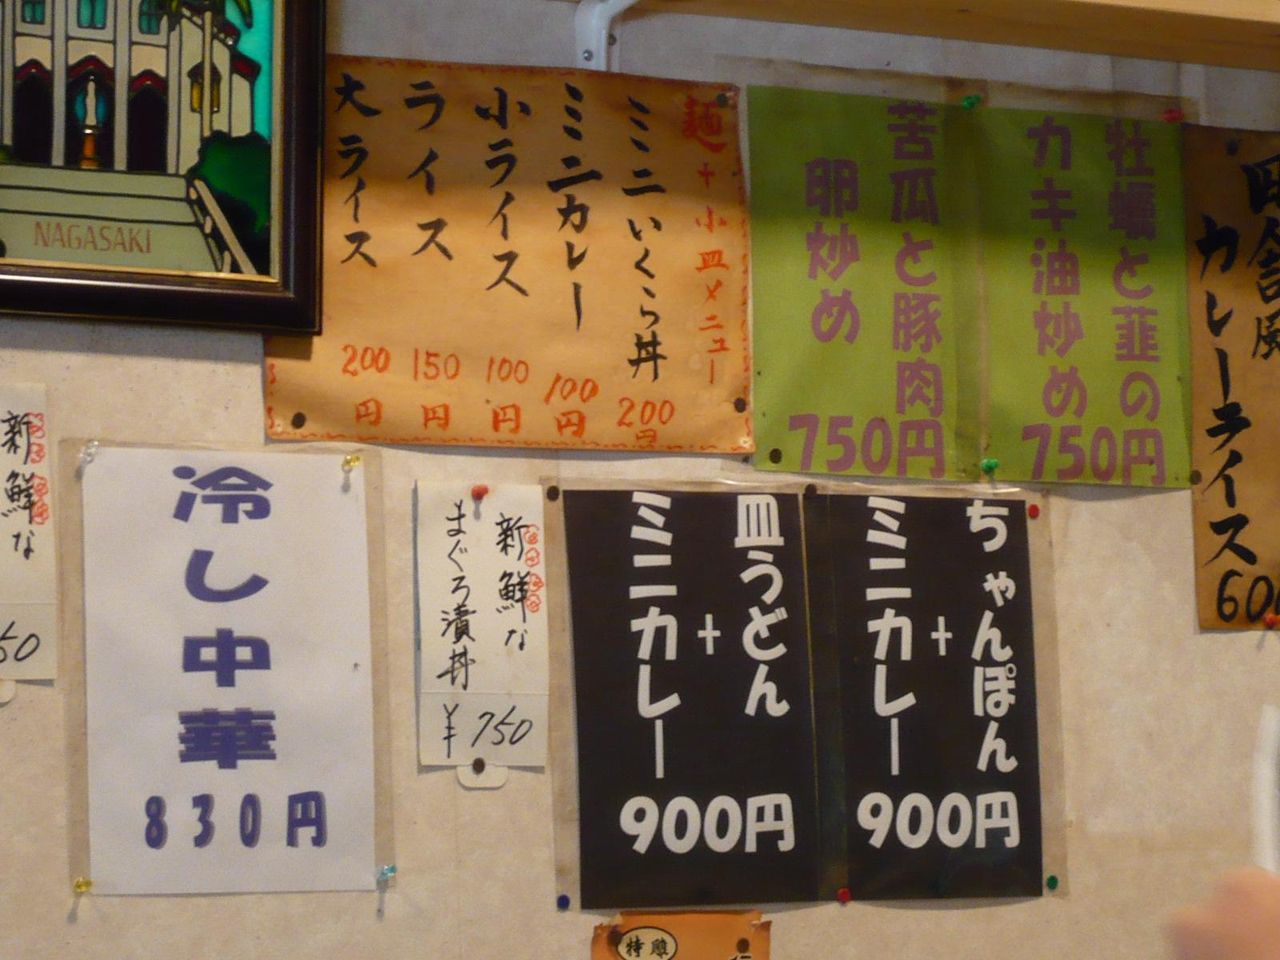 NAGASAKI
麺+小皿メニュー
ミニいくら丼 200円
ミニカレー 100円
小ライス 100円
ライス 150円
大ライス 200円
牡蠣と韮の
カキ油炒め
750円
苦瓜と豚肉
卵炒め
750円
田舎風
カレーライス
60
新鮮な
50
冷し中華
830円
新鮮な
まぐろ漬丼
¥750
ちゃんぽん
+
ミニカレー
900円
皿うどん
+
ミニカレー
900円
特